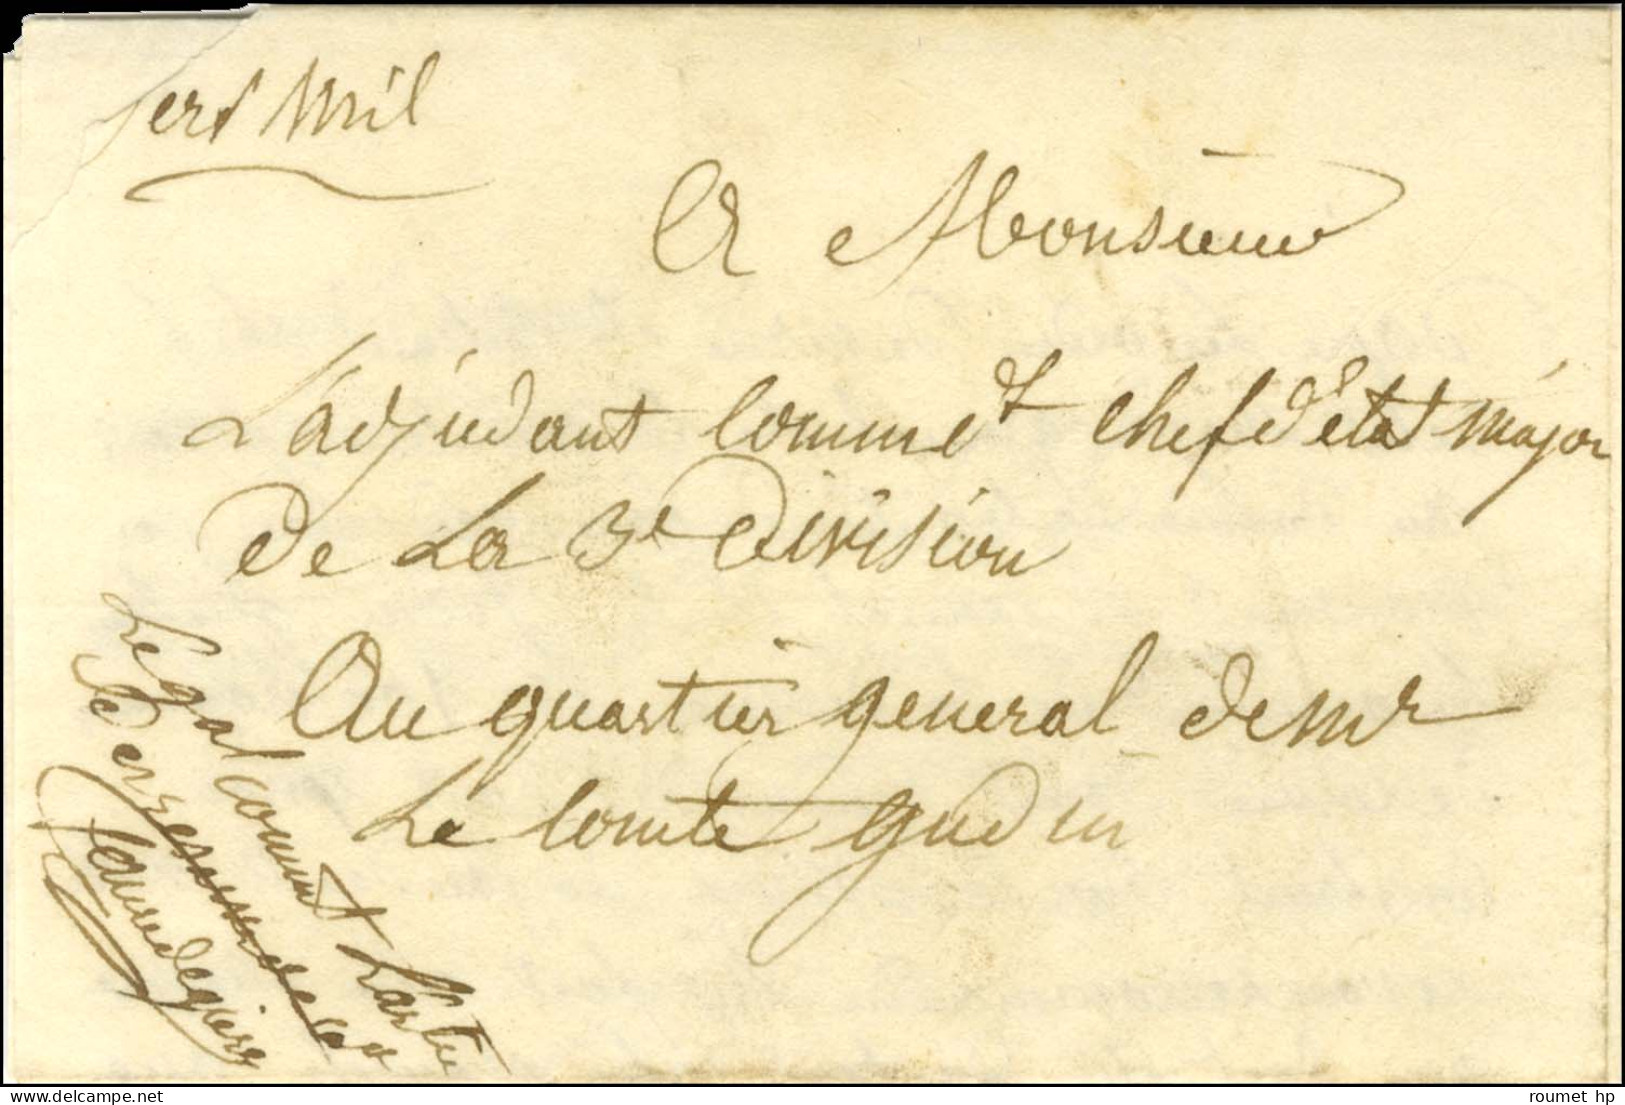 Serv Mil
A Monsieur
L'adjudant Commdt chef d'état major
de La 3e Division
Au quartier general de Mr
Le Comte Gudin
Le gal commt L'artie
delcampe.net
roumet hp